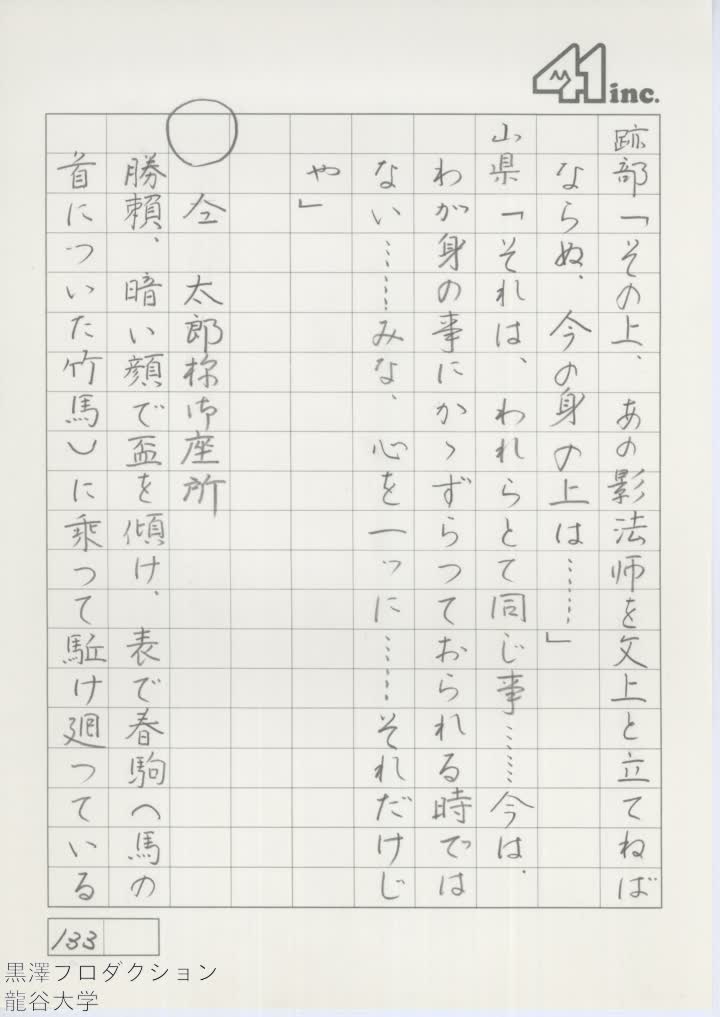 41 inc.
跡部「その上、あの影法師を父上と立てねば
ならぬ、今の身の上は……」
山県「それは、われらとて同じ事……今は、
わが身の事にかゝずらつておられる時では
ない……みな、心を一つに……それだけじ
や」
○ 仝 太郎様御座所
勝頼、暗い顔で盃を傾け、表で春駒(馬の
首についた竹馬)に乗つて駈け廻つている
133
黒澤プロダクション
龍谷大学